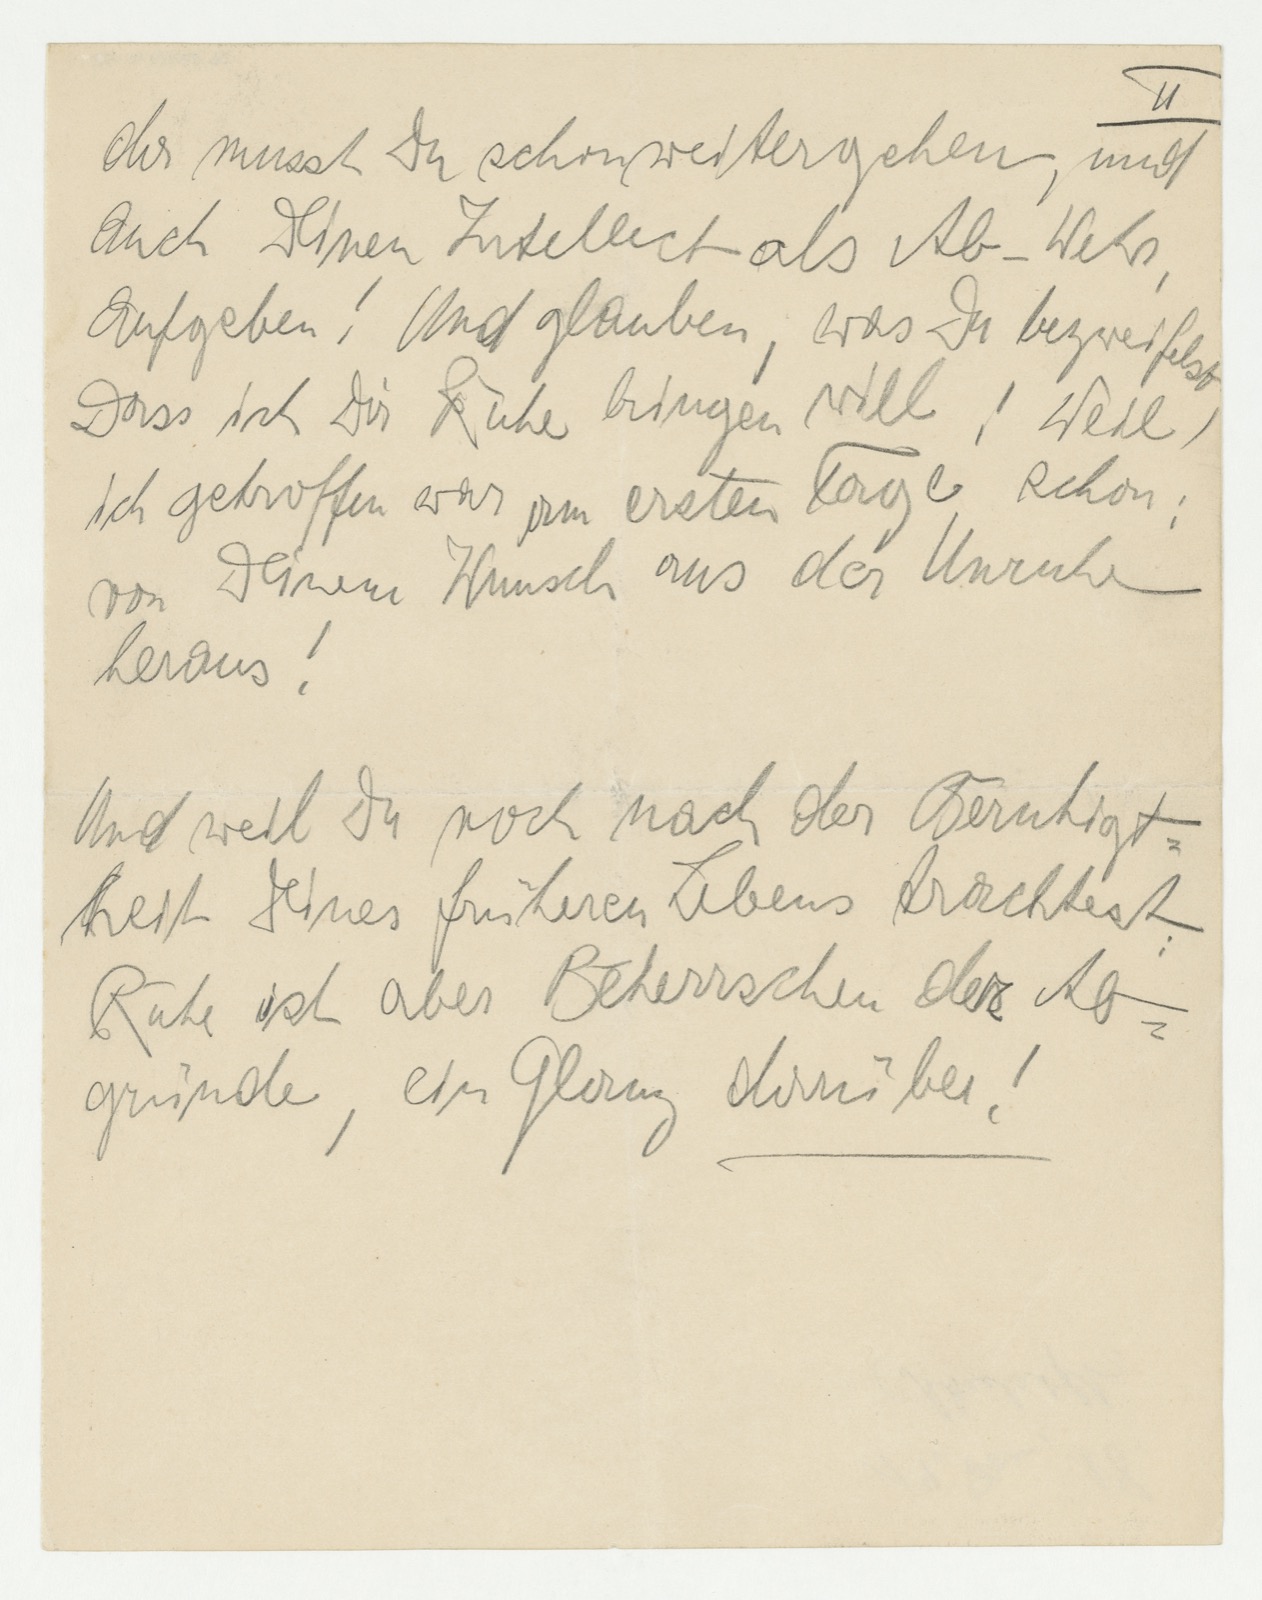 II
da musst Du schon weitergehen, und
auch Deinen Intellect als Ab-Wehr,
aufgeben! Und glauben, was Du bezweifelst
Dass ich Dir Ruhe bringen will! Weil,
ich getroffen war am ersten Tage schon;
von Deinem Wunsch aus der Unruhe
heraus!
Und weil Du noch nach der Beruhigt=
heit Deines früheren Lebens trachtest;
Ruhe ist aber Beherrschen der Ab=
gründe, ein Glanz darüber!